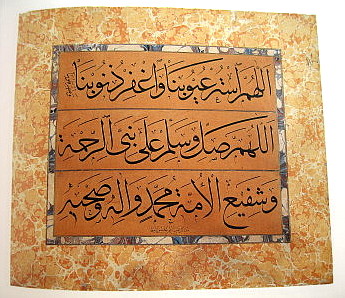 اللهم استر عيوبنا واغفر ذنوبنا
اللهم صل وسلم على نبي الرحمة
وشفيع الامة محمد واله وصحبه